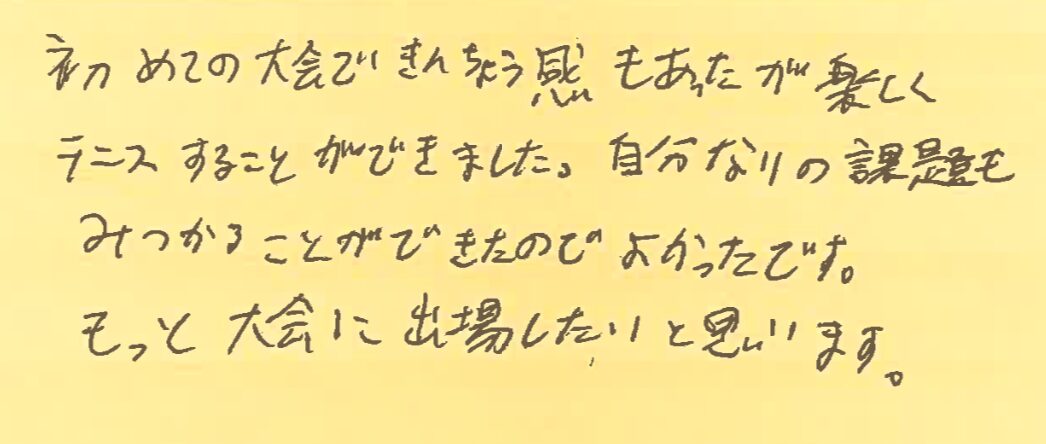 初めての大会できんちょう感もあったが楽しく
テニスすることができました。自分なりの課題も
みつかることができたのでよかったです。
もっと大会に出場したいと思います。